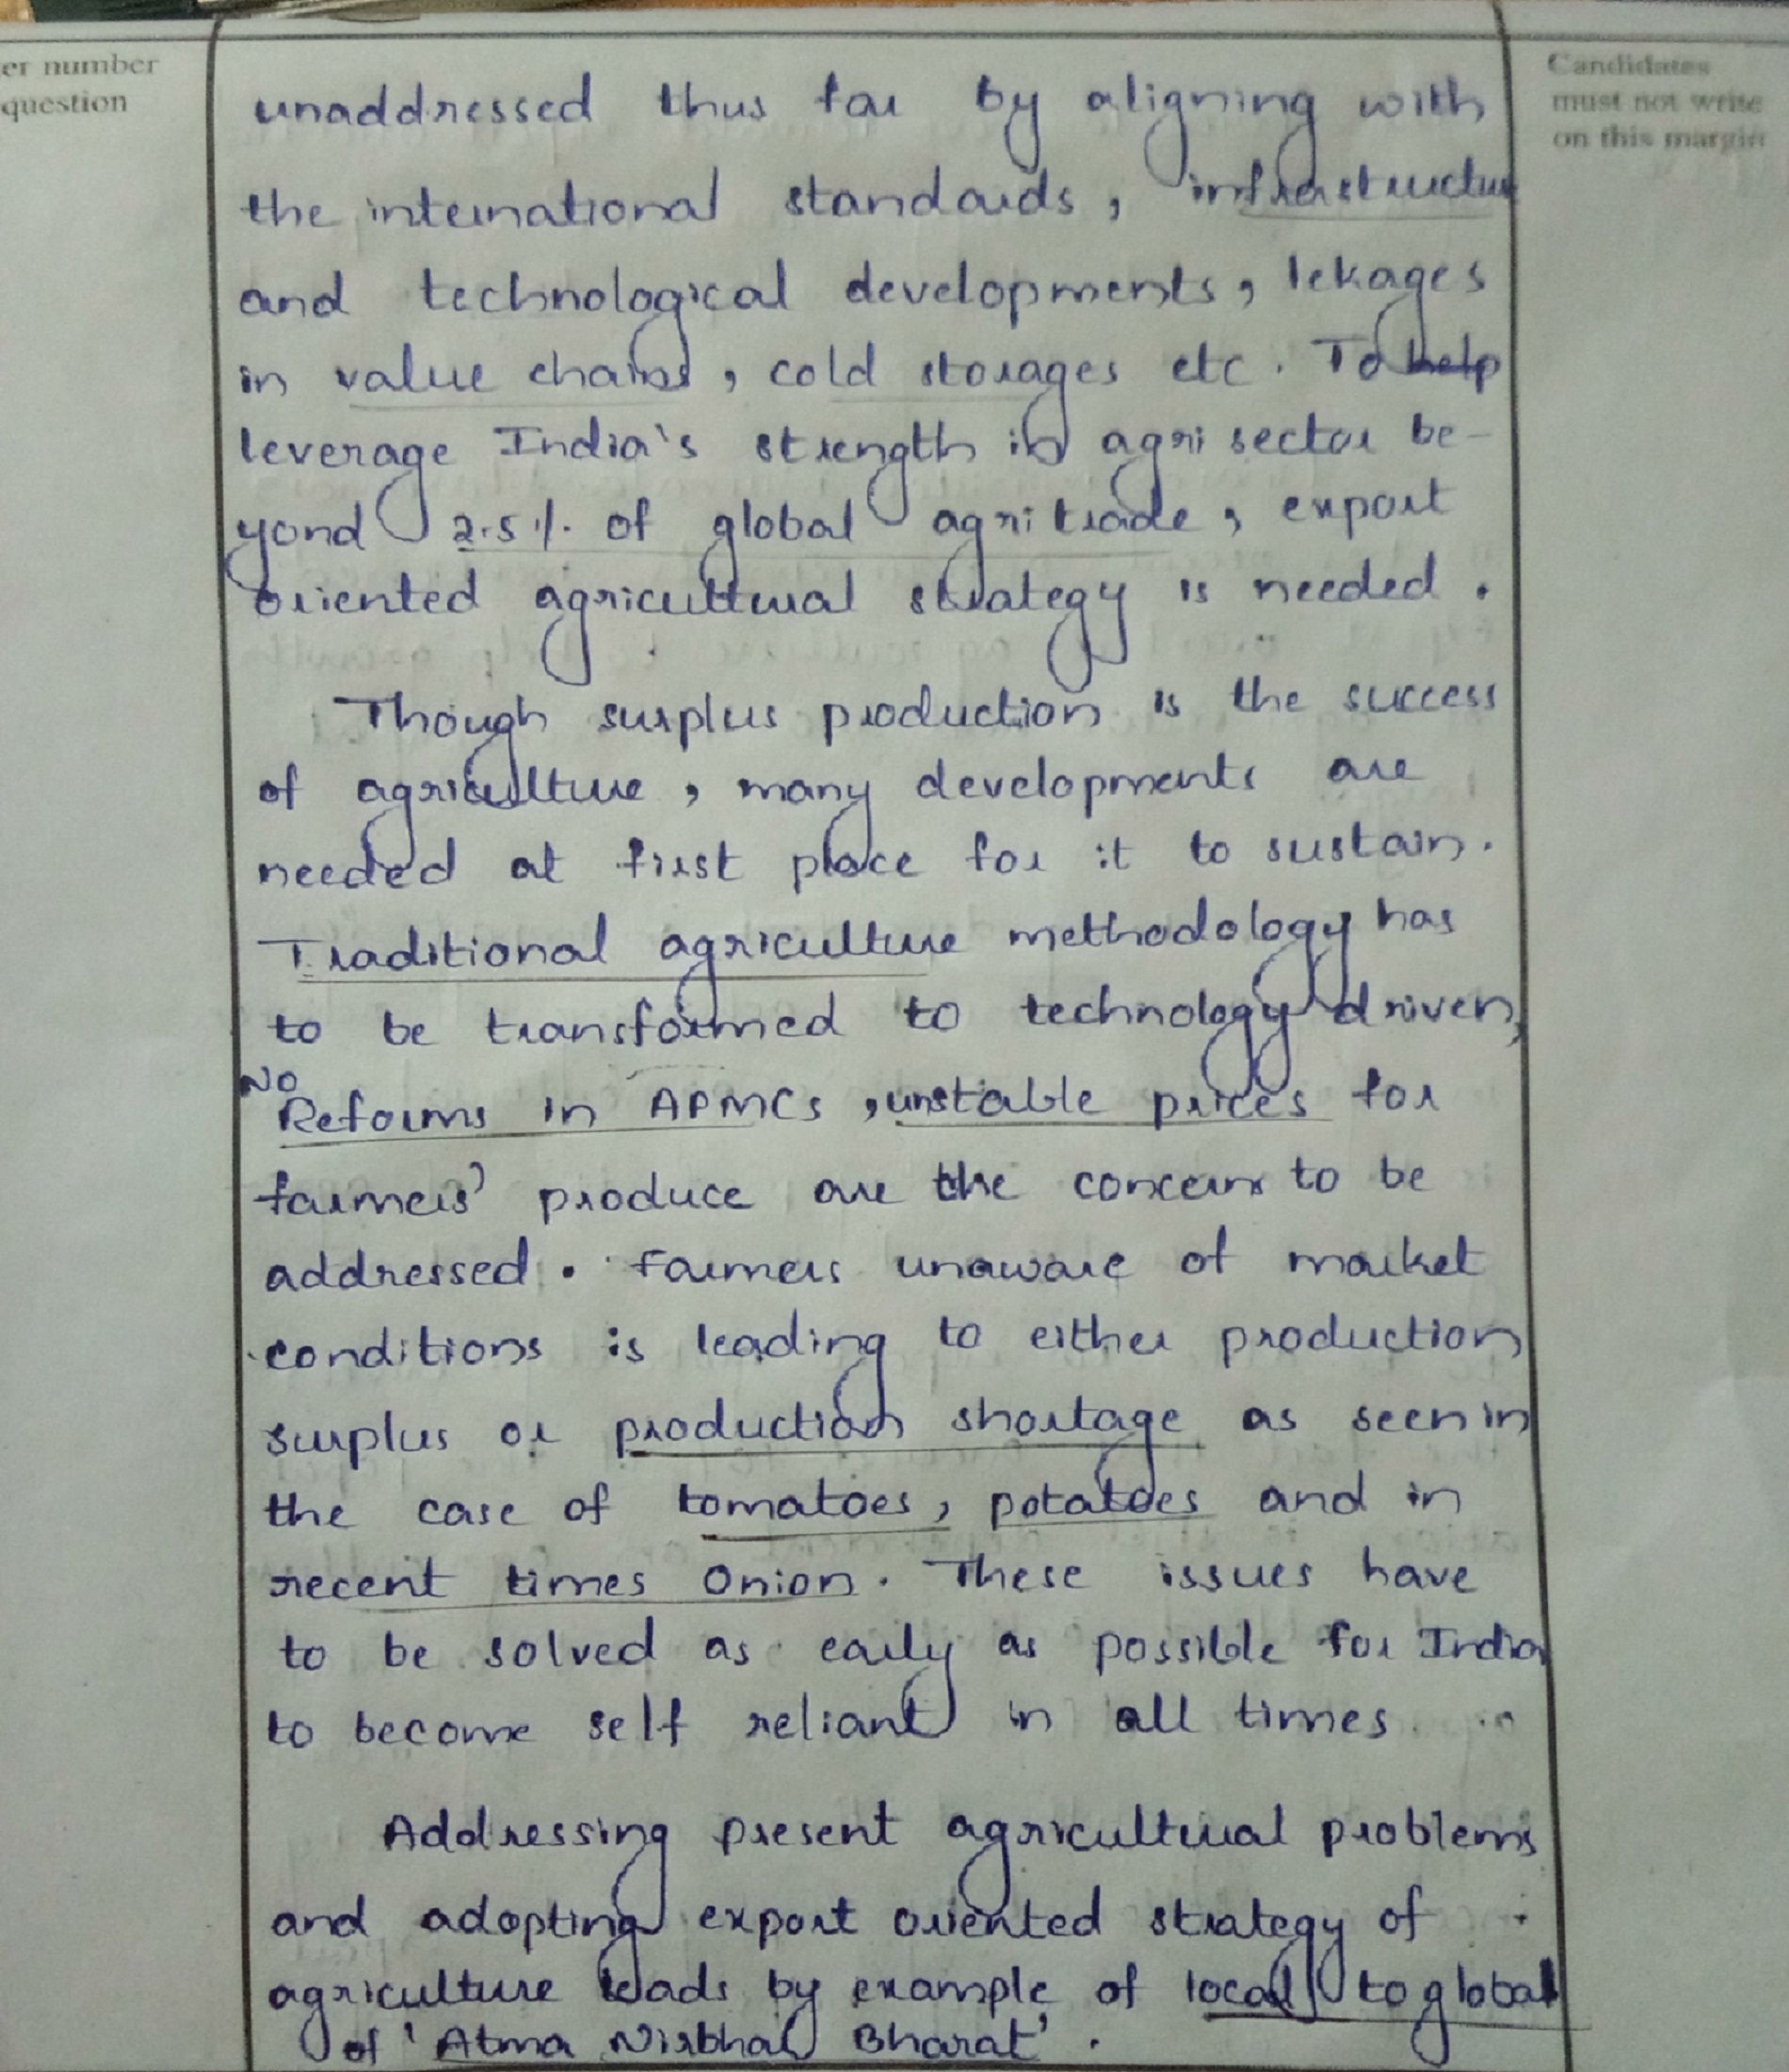 er number
question
Candidates
must not write
on this margin
unaddressed thus far by aligning with
the international standards, infrastructure
and technological developments, lekages
in value chains, cold storages etc. To help
leverage India's strength in agri sector be-
yond 2.5% of global agri trade, export
oriented agricultural strategy is needed.
Though surplus production is the success
of agriculture, many developments are
needed at first place for it to sustain.
Traditional agriculture methodology has
to be transformed to technology driven,
No
Reforms in APMCs, unstable prices for
farmers' produce are the concerns to be
addressed. Farmers unaware of market
conditions is leading to either production
surplus or production shortage as seen in
the case of tomatoes, potatoes and in
recent times Onion. These issues have
to be solved as early as possible for India
to become self reliant in all times.
Addressing present agricultural problems
and adopting export oriented strategy of
agriculture leads by example of local to global
of 'Atma Nirbhar Bharat'.